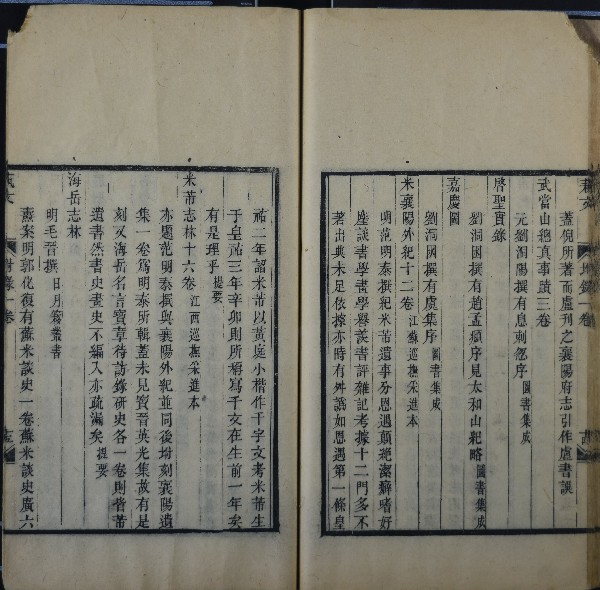 蓋倪所著而盧刊之襄陽府志引作盧書誤
武當山總真事蹟三卷
元劉洞陽撰有息剌忽序 圖書集成
啓聖實錄
劉洞困撰有趙孟頫序見太和山紀略 圖書集成
嘉慶圖
劉洞困撰有虞集序 圖書集成
米襄陽外紀十二卷 江蘇巡撫采進本
明范明泰撰紀米芾遺事分恩遇顛絶潔癖嗜好
麈談書學畫學譽羨書評雜記考據十二門多不
著出典未足依據亦時有舛譌如恩遇第一條皇
祐二年詔米芾以黃庭小楷作千字文考米芾生
于皇祐三年辛卯則所稱寫千文在生前一年矣
有是理乎 提要
米芾志林十六卷 江西巡撫采進本
亦題范明泰撰與襄陽外紀並同後坿刻襄陽遺
集一卷爲明泰所輯蓋未見寶晉英光集故有是
刻又海岳名言寶章待訪錄研史各一卷則皆芾
遺書然書史畫史不編入亦疏漏矣 提要
海岳志林
明毛晉撰 日月岩叢書
燾案明郭化復有蘇米談史一卷蘇米談史廣六
坿錄一卷